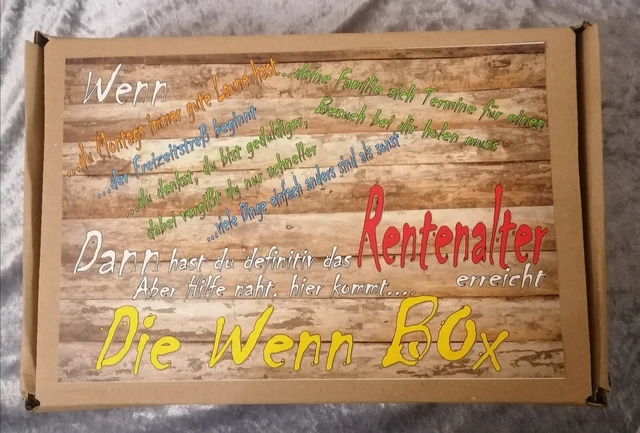 Wenn
...du Montags immer gute Laune hast
...deine Familie sich Termine für einen
Besuch bei dir holen muss
...der Freizeitstreß beginnt
...du denkst, du bist geduldiger,
dabei vergißt du nur schneller
...viele Dinge einfach anders sind als sonst
Dann hast du definitiv das Rentenalter
erreicht
Aber Hilfe naht, hier kommt....
Die Wenn BOx